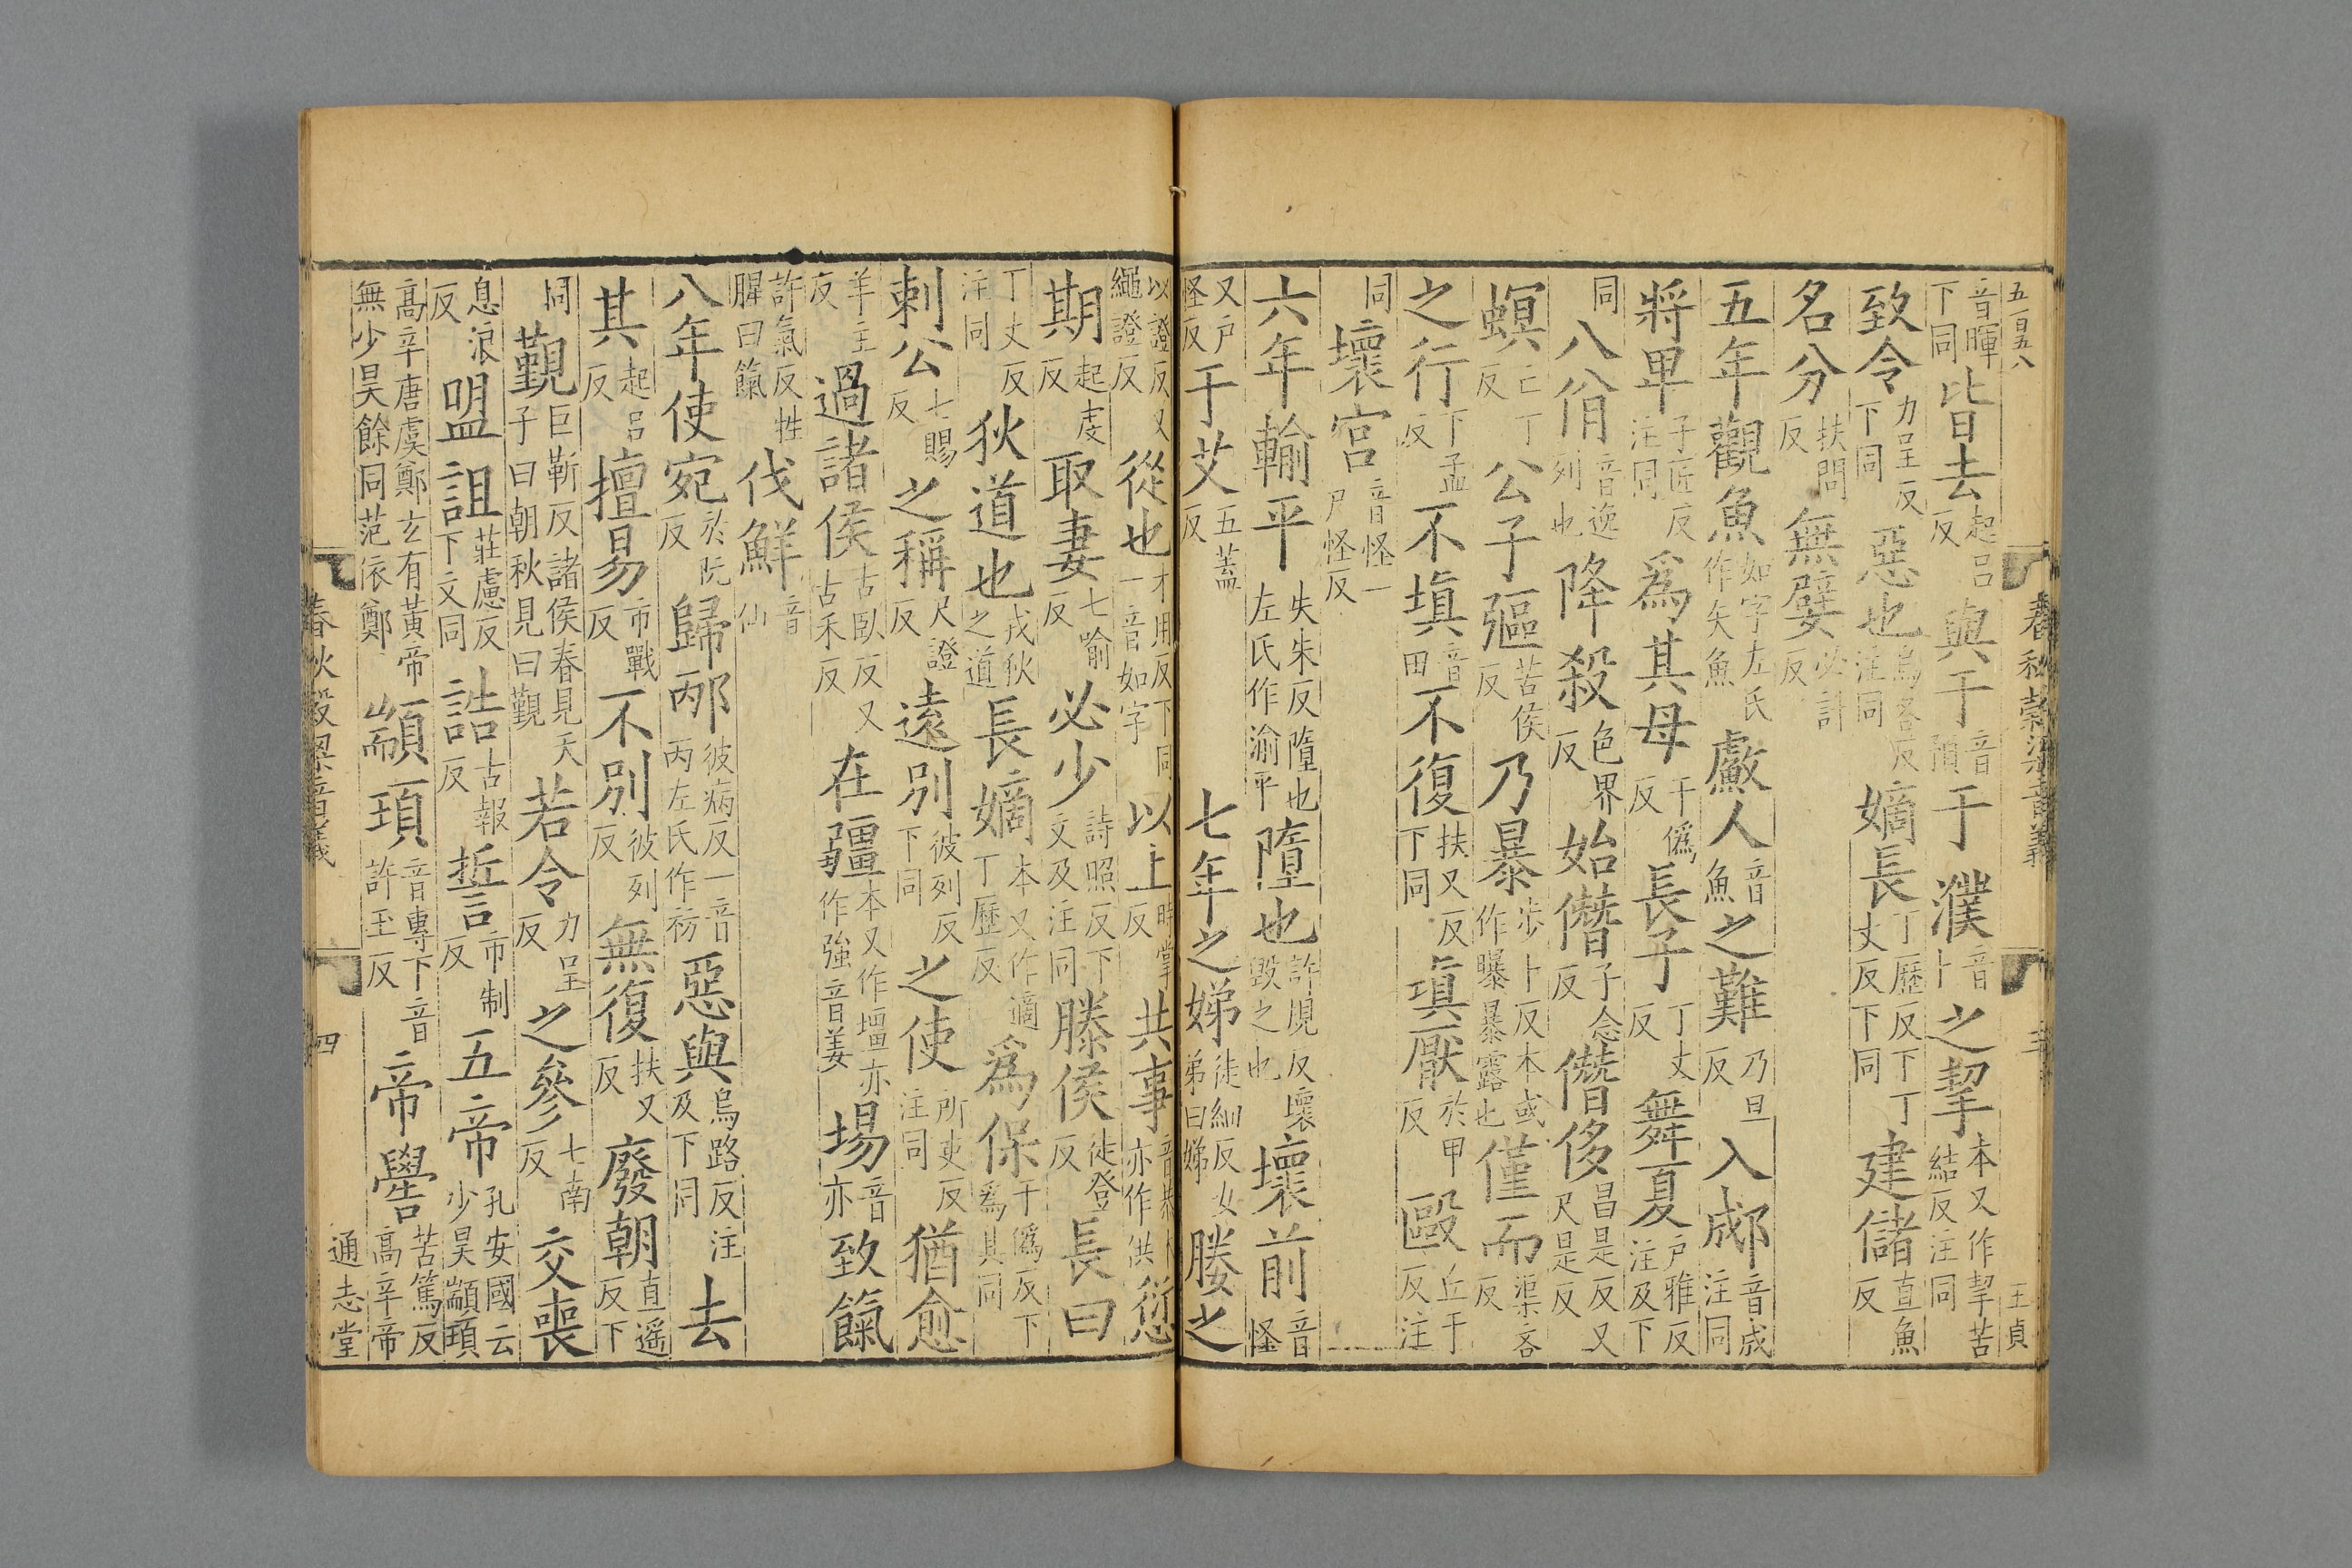 五百五八 春秋穀梁音義 三 王貞
音暉下同皆去起呂反與于音預于濮音卜之挈本又作挈苦結反注同
致令力呈反下同惡也烏各反注同嫡長丁歷反下丁丈反下同建儲直魚反
名分扶問反無嬖必計反
五年觀魚如字左氏作矢魚𠩺人音魚之難乃旦反入郕音成注同
將卑子匠反注同爲其母于僞反長子丁丈反舞夏戶雅反注及下
同八佾音逸列也降殺色界反始僭子念反僭侈昌是反又尺是反
螟亡丁反公子彄苦侯反乃暴步卜反本或作曝暴露也僅而渠吝反
之行下孟反不塡音田不復扶又反下同塡厭於甲反毆丘于反注
同壞宮音怪一戶怪反
六年輸平失朱反隳也左氏作渝平隳也許規反壞毀之也壞前音怪
又戶怪反于艾五蓋反七年之娣徒細反女弟曰娣媵之
以證反又繩證反從也才用反下同一音如字以上時掌反共事音恭亦作供愆
期起虔反取妻七喻反必少詩照反下文及注同滕侯徒登反長曰
丁丈反注同狄道也戎狄之道長嫡本又作適丁歷反爲保于僞反下爲其同
刺公七賜反之稱尺證反遠別彼列反下同之使所吏反注同猶愈
羊主反過諸侯古臥反又古禾反在疆本又作壃亦作強音姜場音亦致餼
許氣反牲腥曰餼伐鮮音仙
八年使宛於阮反歸邴彼病反一音丙左氏作祊惡與烏路反注及下同去
其起呂反擅易市戰反不別彼列反無復扶又反廢朝直遙反下
同覲巨靳反諸侯春見天子曰朝秋見曰覲若令力呈反之參七南反交喪
息浪反盟詛莊慮反下文同誥古報反誓市制反五帝孔安國云少昊顓頊
高辛唐虞鄭玄有黃帝無少昊餘同范依鄭顓頊音專下音許玉反帝嚳苦篤反高辛帝
春秋穀梁音義 四 通志堂